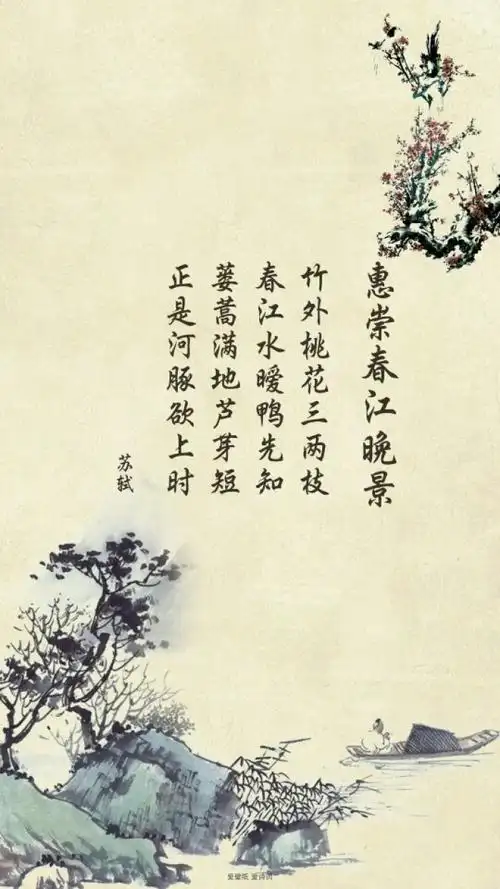 惠崇春江晚景
竹外桃花三两枝
春江水暧鸭先知
蒌蒿满地芦芽短
正是河豚欲上时
苏轼
爱壁纸 爱诗词